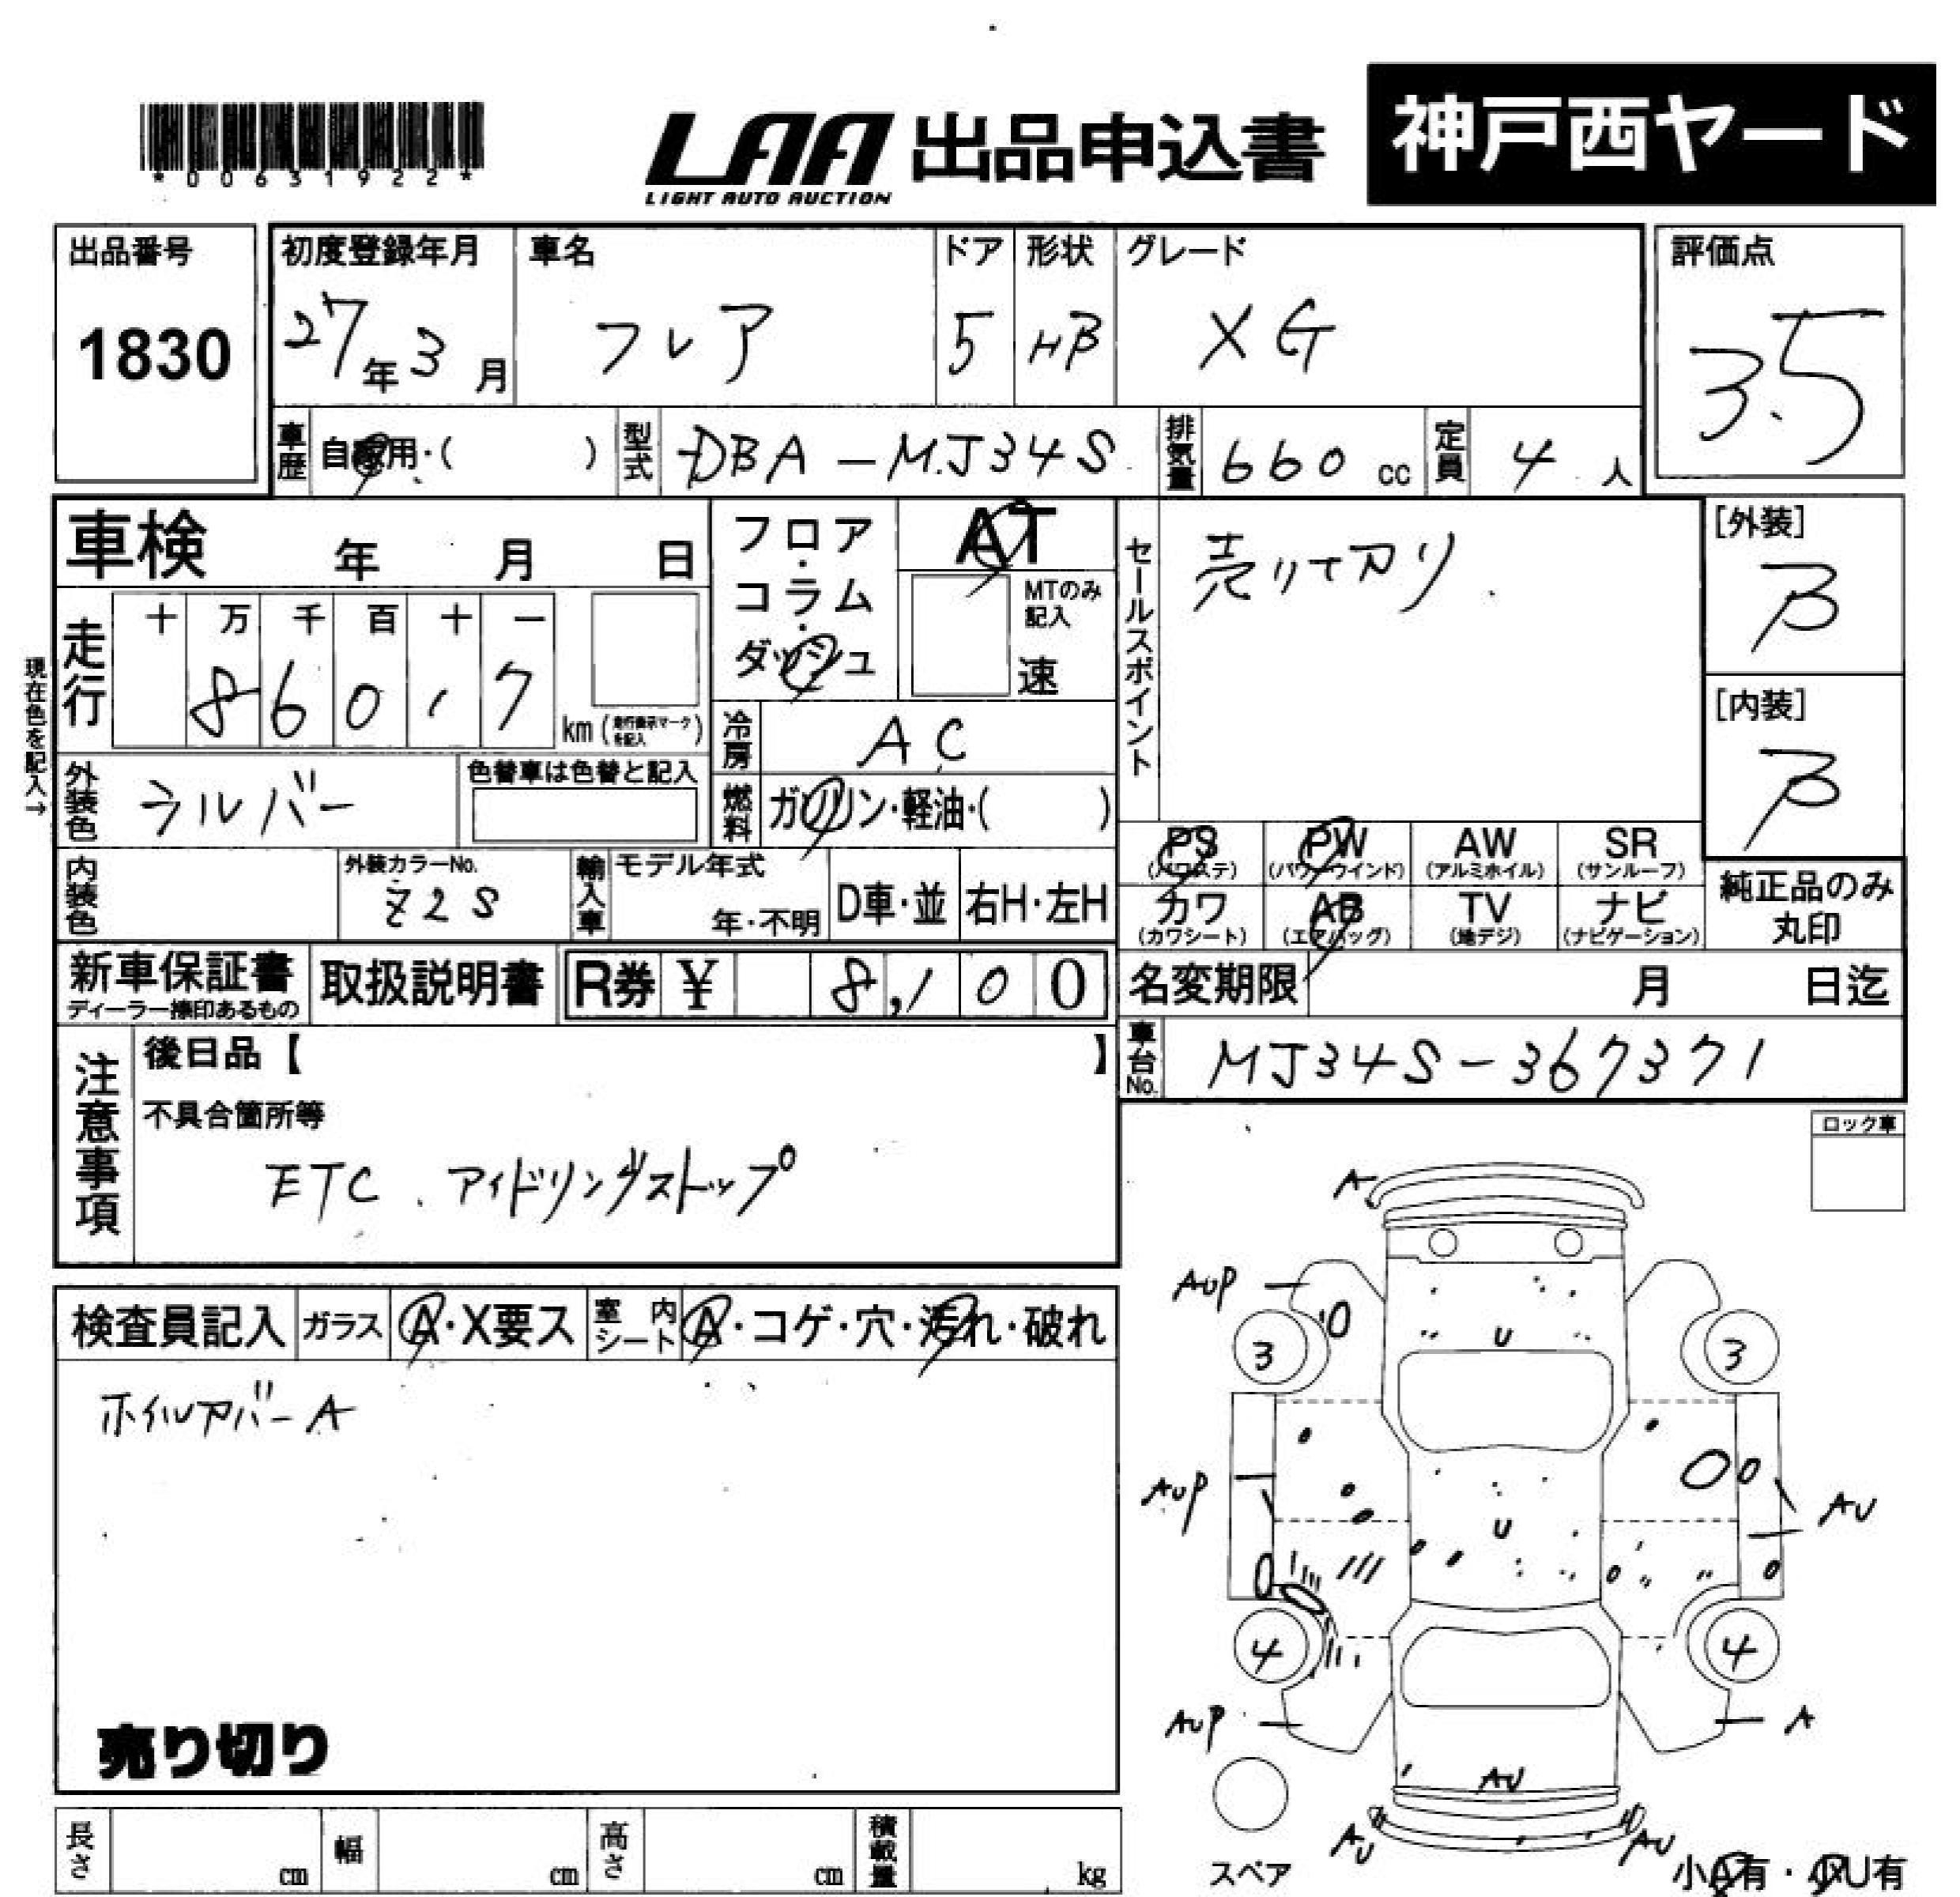 *00631922*
LAA 出品申込書 神戸西ヤード
LIGHT AUTO AUCTION
出品番号 1830
初度登録年月 27年3月
車名 フレア
ドア 5
形状 HB
グレード XG
評価点 3.5
車歴 自家用・( )
型式 DBA-MJ34S
排気量 660 cc
定員 4 人
車検 年 月 日
フロア・コラム・ダッシュ
AT
MTのみ記入 速
セールスポイント 売リ切リ
[外装] B
[内装] B
現在色を記入→
走行 十 万 千 百 十 一
8 6 0 1 7 km (走行表示マークを記入)
冷房 AC
外装色 シルバー
色替車は色替と記入
燃料 ガソリン・軽油・( )
内装色
外装カラーNo. Z2S
輸入車 モデル年式 年・不明 D車・並 右H・左H
PS (パワステ) PW (パワーウインド) AW (アルミホイル) SR (サンルーフ)
カワ (カワシート) AB (エアバッグ) TV (地デジ) ナビ (ナビゲーション)
純正品のみ丸印
新車保証書 ディーラー捺印あるもの
取扱説明書
R券 ¥ 8,100
名変期限 月 日迄
車台No. MJ34S-367371
注意事項
後日品【 】
不具合箇所等
ETC . アイドリングストップ
ロック車
検査員記入 ガラス A・X要ス 室内シート A・コゲ・穴・汚れ・破れ
ホイルカバーA
売り切り
A
AUP
3 3
U
AUP
U
AU
4 4
AUP
A
AU
AU
AU
スペア
小A有・小U有
長さ cm 幅 cm 高さ cm 積載量 kg